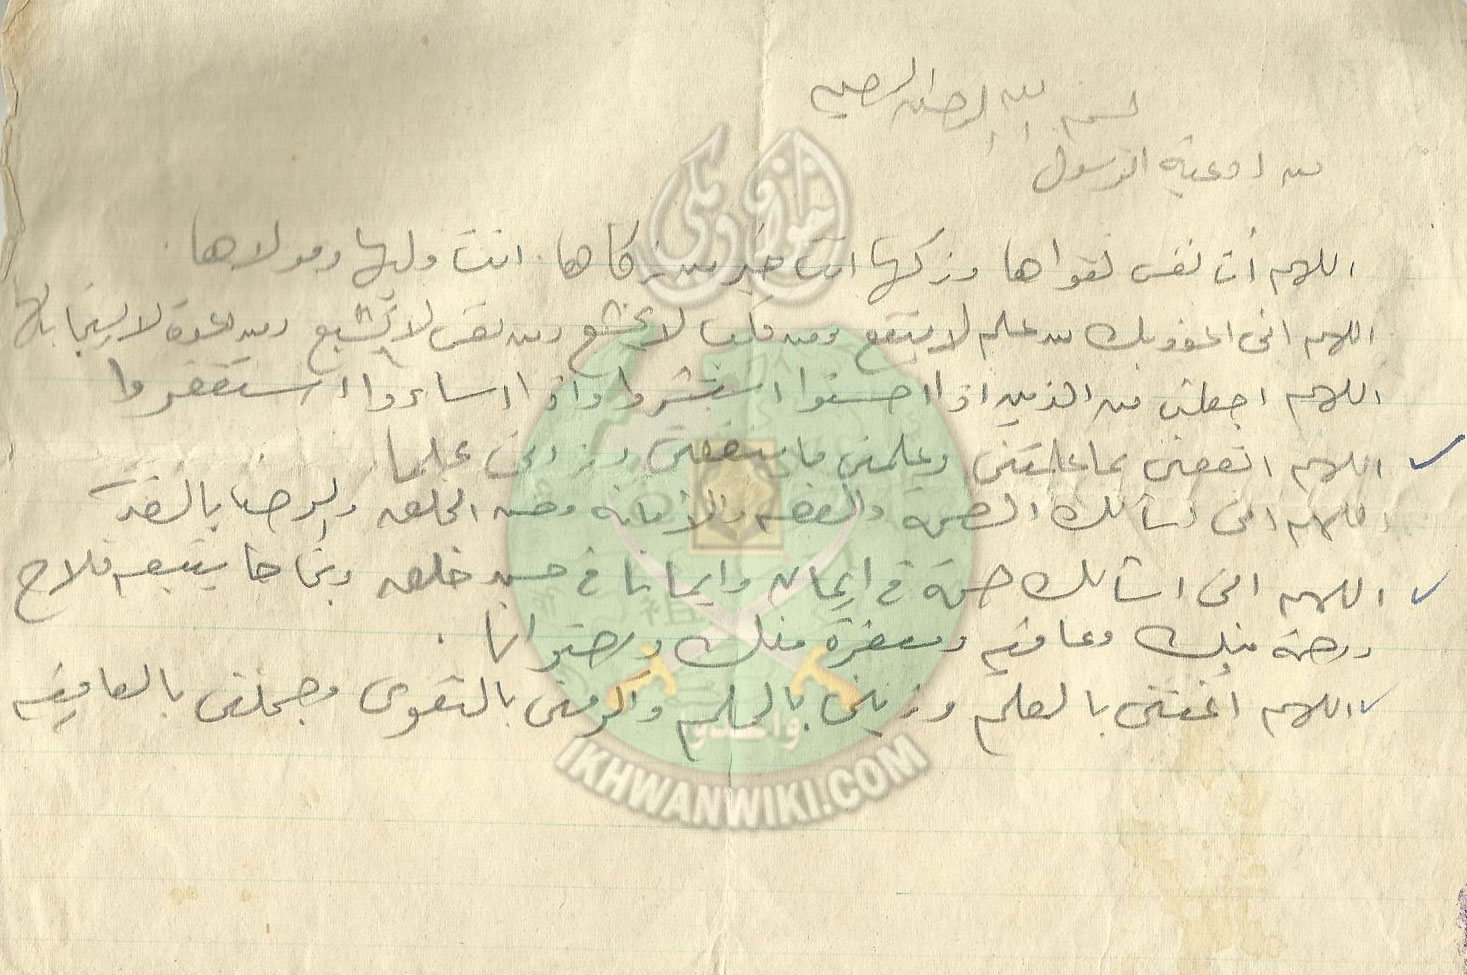 بسم الله الرحمن الرحيم
من ادعية الرسول
اللهم أت نفسى تقواها وزكها انت خير من زكاها. انت وليها ومولاها.
اللهم انى اعوذ بك من علم لا ينفع ومن قلب لا يخشع ومن نفس لا تشبع ومن دعوة لا يستجاب لها
اللهم اجعلنى من الذين اذا احسنوا استبشروا واذا اساءوا استغفروا
اللهم انفعنى بما علمتنى وعلمنى ما ينفعنى وزدنى علما
اللهم انى اسألك الصحة والعفه والأمانة وحسن الخلق والرضا بالقدر
اللهم انى اسألك صحة فى ايمان وايمانا فى حسن خلق ونجاحا يتبعه فلاح
ورحمة منك وعافيه ومغفرة منك ورضوانا.
اللهم أغننى بالعلم وزينى بالحلم وأكرمنى بالتقوى وجملنى بالعافيه
إخوان ويكى
وأعدوا
IKHWANWIKI.COM